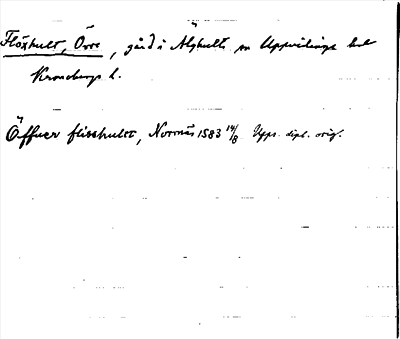 Flöxhult, Övre, gård i Älghults sn Uppvidinge hd
Kronobergs l.
Öffuer flisshult, Norrnäs 1583 14/8 Upps. dipl. orig.